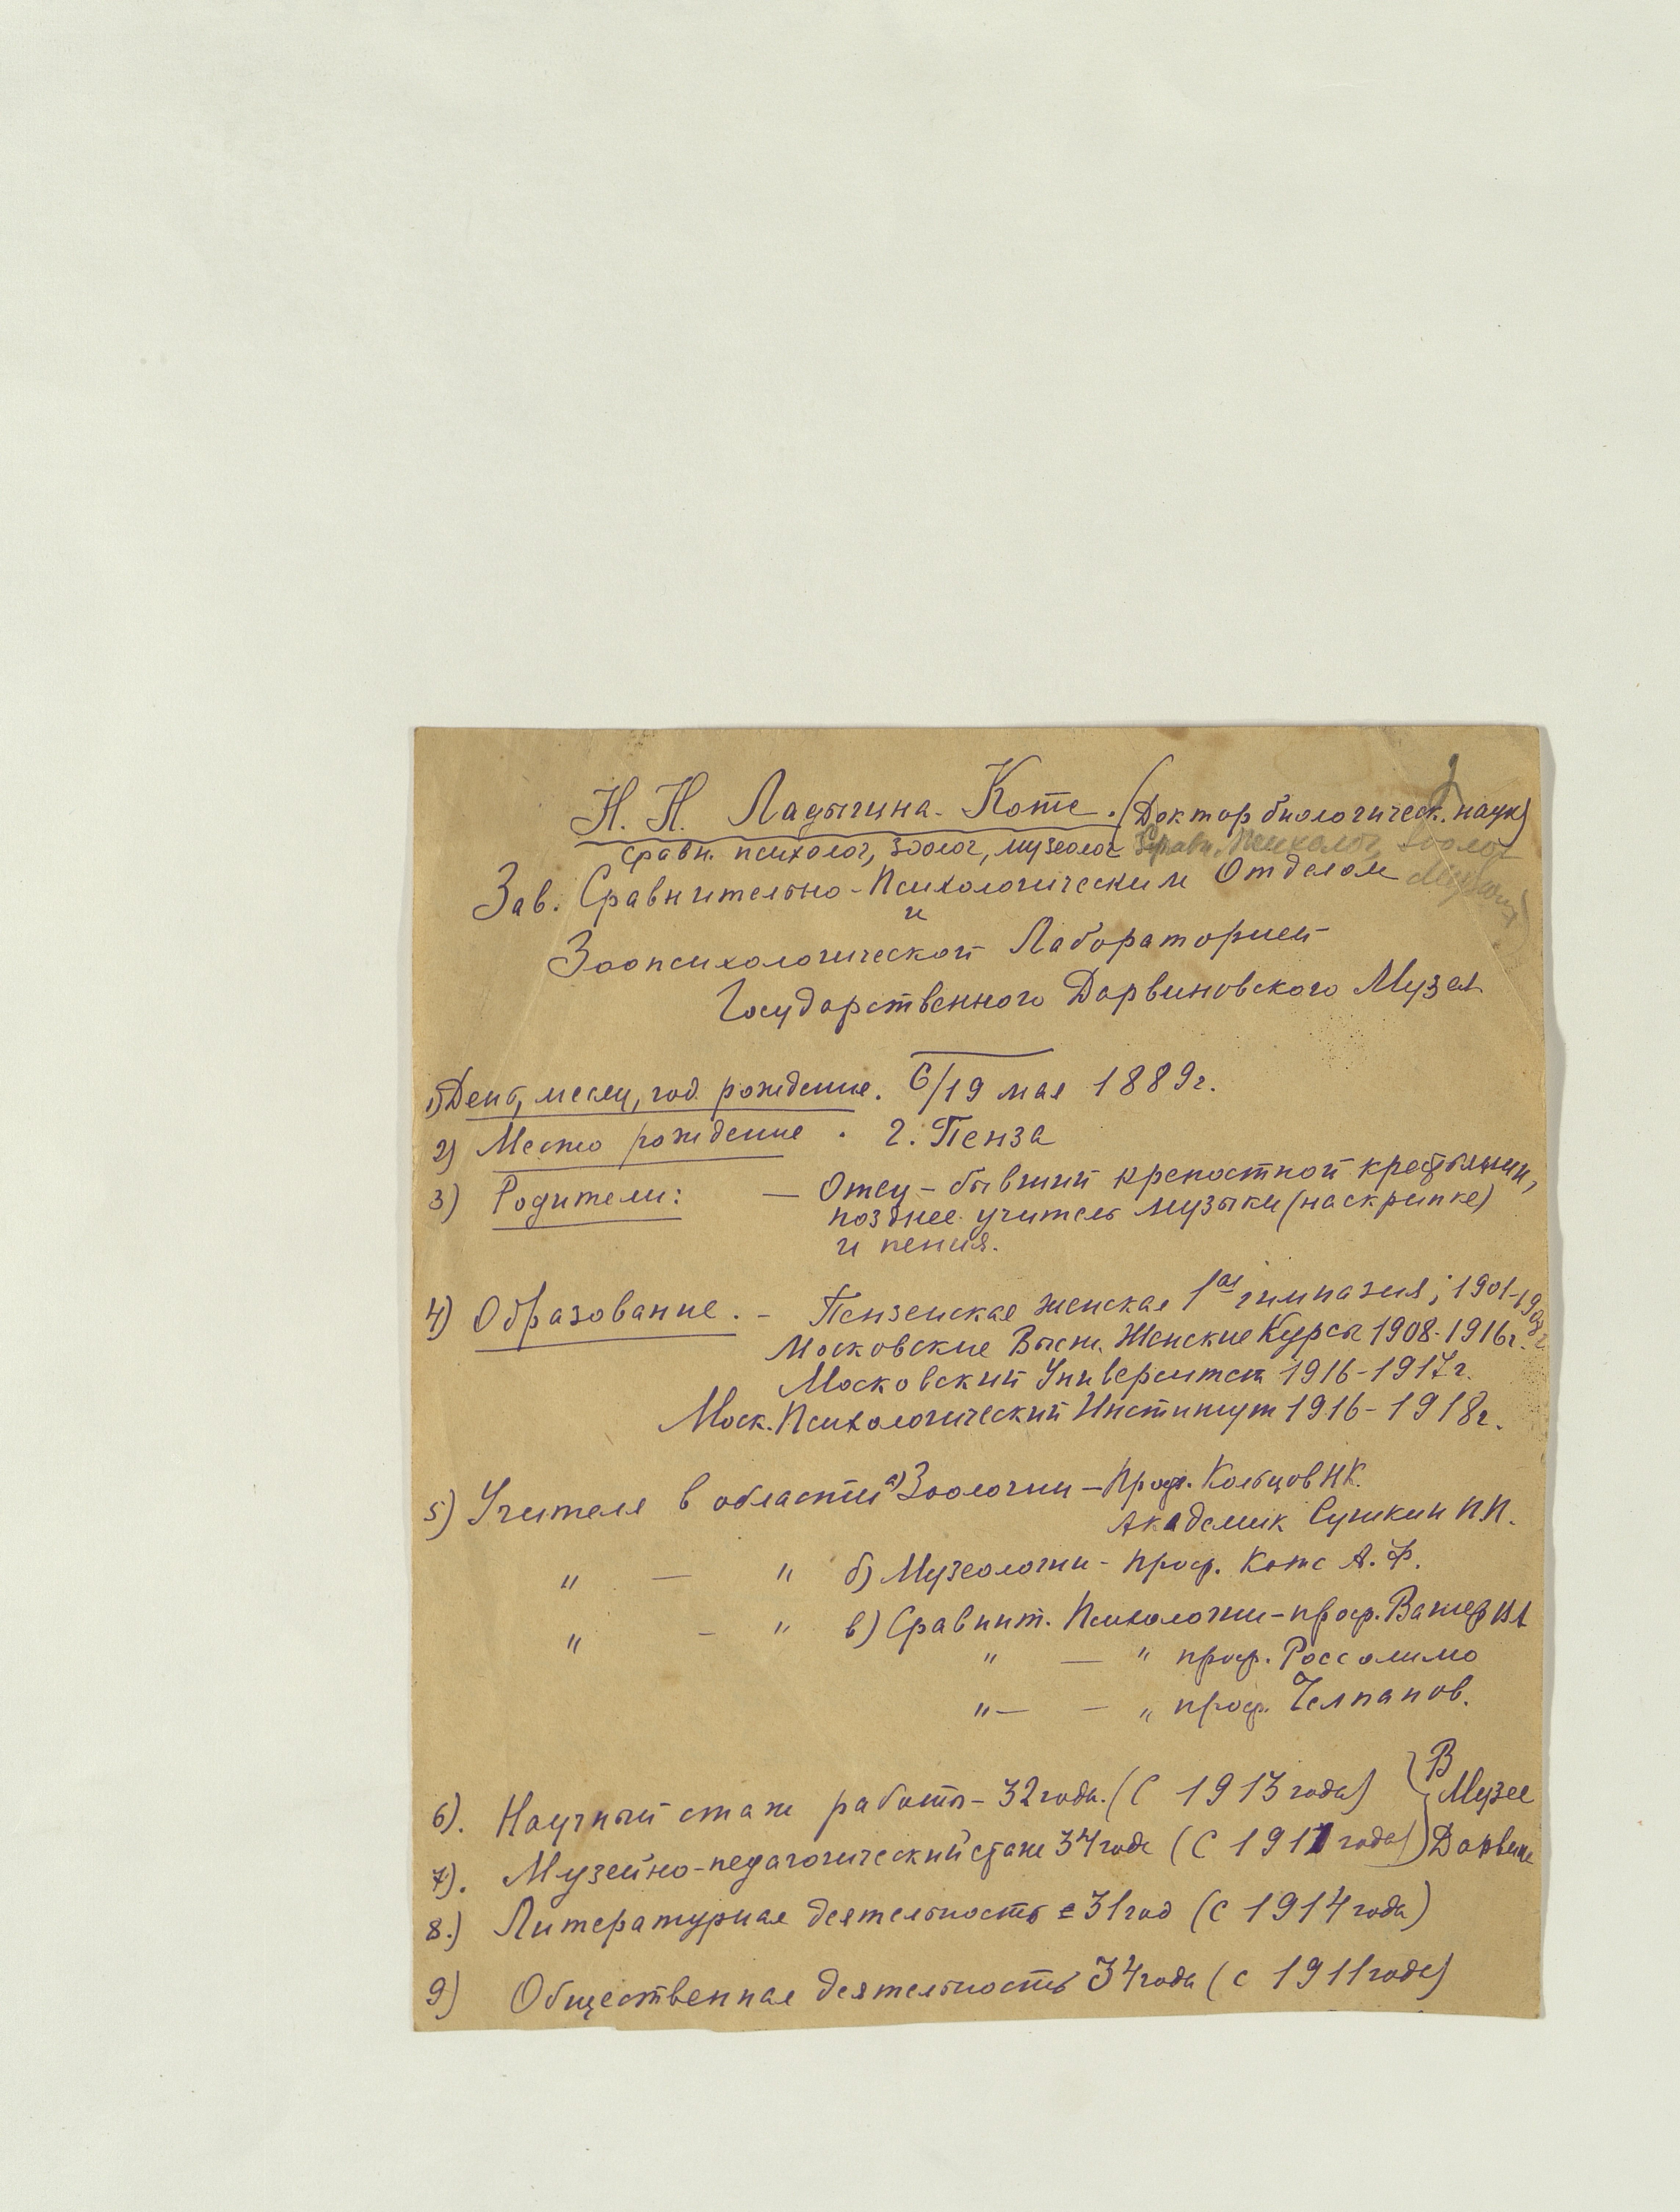 Н. Н. Ладыгина-Котс. (Доктор биологическ. наук)
Сравн. психолог, зоолог, музеолог Сравн. Психолог, Зоолог
Зав. Сравнительно-Психологическим Отделом
и
Зоопсихологической Лабораторией
Государственного Дарвиновского Музея
1) День, месяц, год рождения. 6/19 мая 1889г.
2) Место рождения . г. Пенза
3) Родители: — Отец - бывший крепостной крестьянин,
позднее учитель музыки (на скрипке)
и пения.
4) Образование. - Пензенская женская 1ая гимназия; 1901-1908г.
Московские Высш. Женские Курсы 1908-1916г.
Московский Университет 1916-1917г.
Моск. Психологический Институт 1916-1918г.
5) Учителя в области а) Зоологии - Проф. Кольцов Н К.
Академик Сушкин П.П.
" — " б) Музеологии - проф. Котс А. Ф.
" - " в) Сравнит. Психологии - проф. Вагнер ВА
" — " проф. Россолимо
" — - " проф. Челпанов.
6). Научный стаж работы - 32 года. (С 1913 года) } В Музее
7). Музейно-педагогический стаж 34 года (С 1911 года) } Дарвина
8.) Литературная деятельность = 31 год (с 1914 года)
9) Общественная деятельность 34 года (с 1911 года)